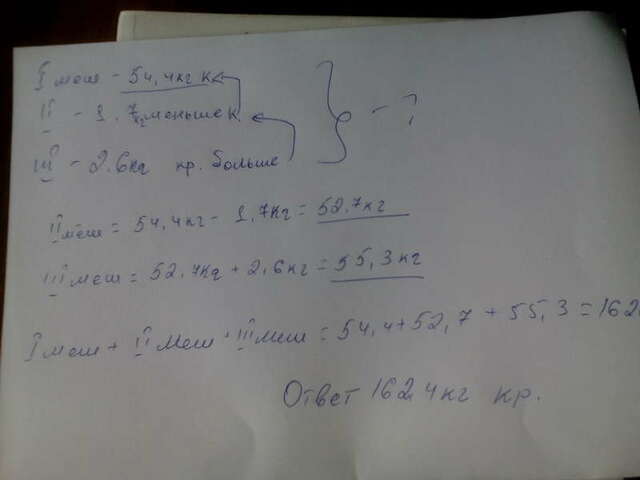 I меш - 54,4кг к
II - 1,7кг меньше к.
III - 2.6кг кр. больше
} - ?
II меш = 54,4кг - 1,7кг = 52.7кг
III меш = 52,7кг + 2,6кг = 55,3кг
I меш + II меш + III меш = 54,4+52,7 + 55,3 = 162
Ответ 162,4кг кр.